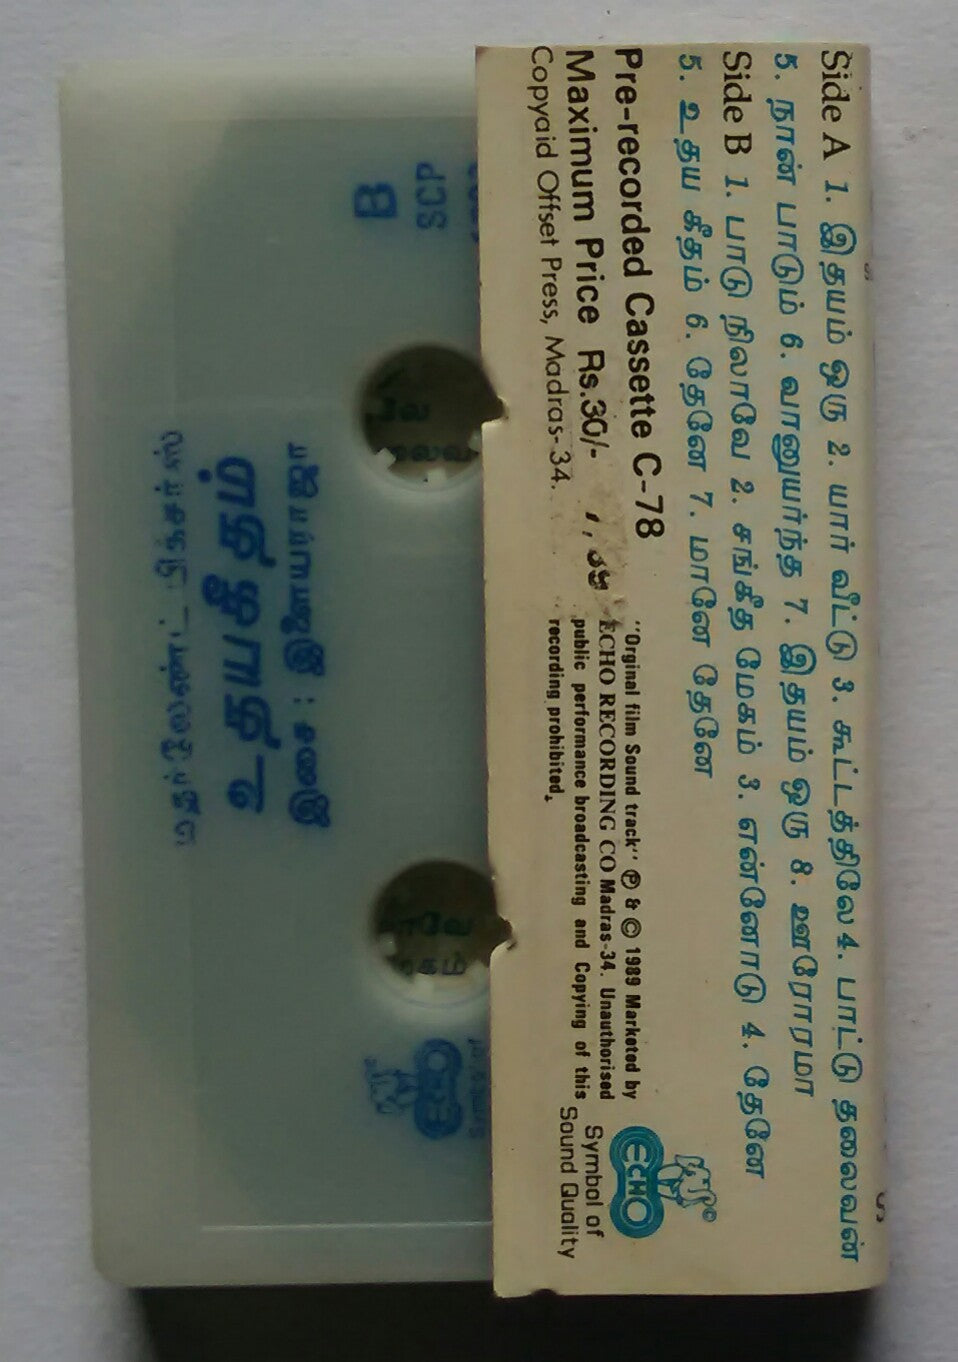 Side A 1. இதயம் ஒரு 2. யார் வீட்டு 3. கூட்டத்திலே 4. பாட்டு தலைவன்
5. நான் பாடும் 6. வானுயர்ந்த 7. இதயம் ஒரு 8. ஊரோரமா
Side B 1. பாடு நிலாவே 2. சங்கீத மேகம் 3. என்னோடு 4. தேனே
5. உதய கீதம் 6. தேனே 7. மானே தேனே
Pre-recorded Cassette C-78
Maximum Price Rs.30/-
Copyaid Offset Press, Madras-34.
"Orginal film Sound track" ℗ & © 1989 Marketed by
ECHO RECORDING CO Madras-34. Unauthorised
public performance broadcasting and Copying of this
recording prohibited.
ECHO
©
Symbol of
Sound Quality
SCP
B
உதயகீதம்
இசை : இளையராஜா
ECHO